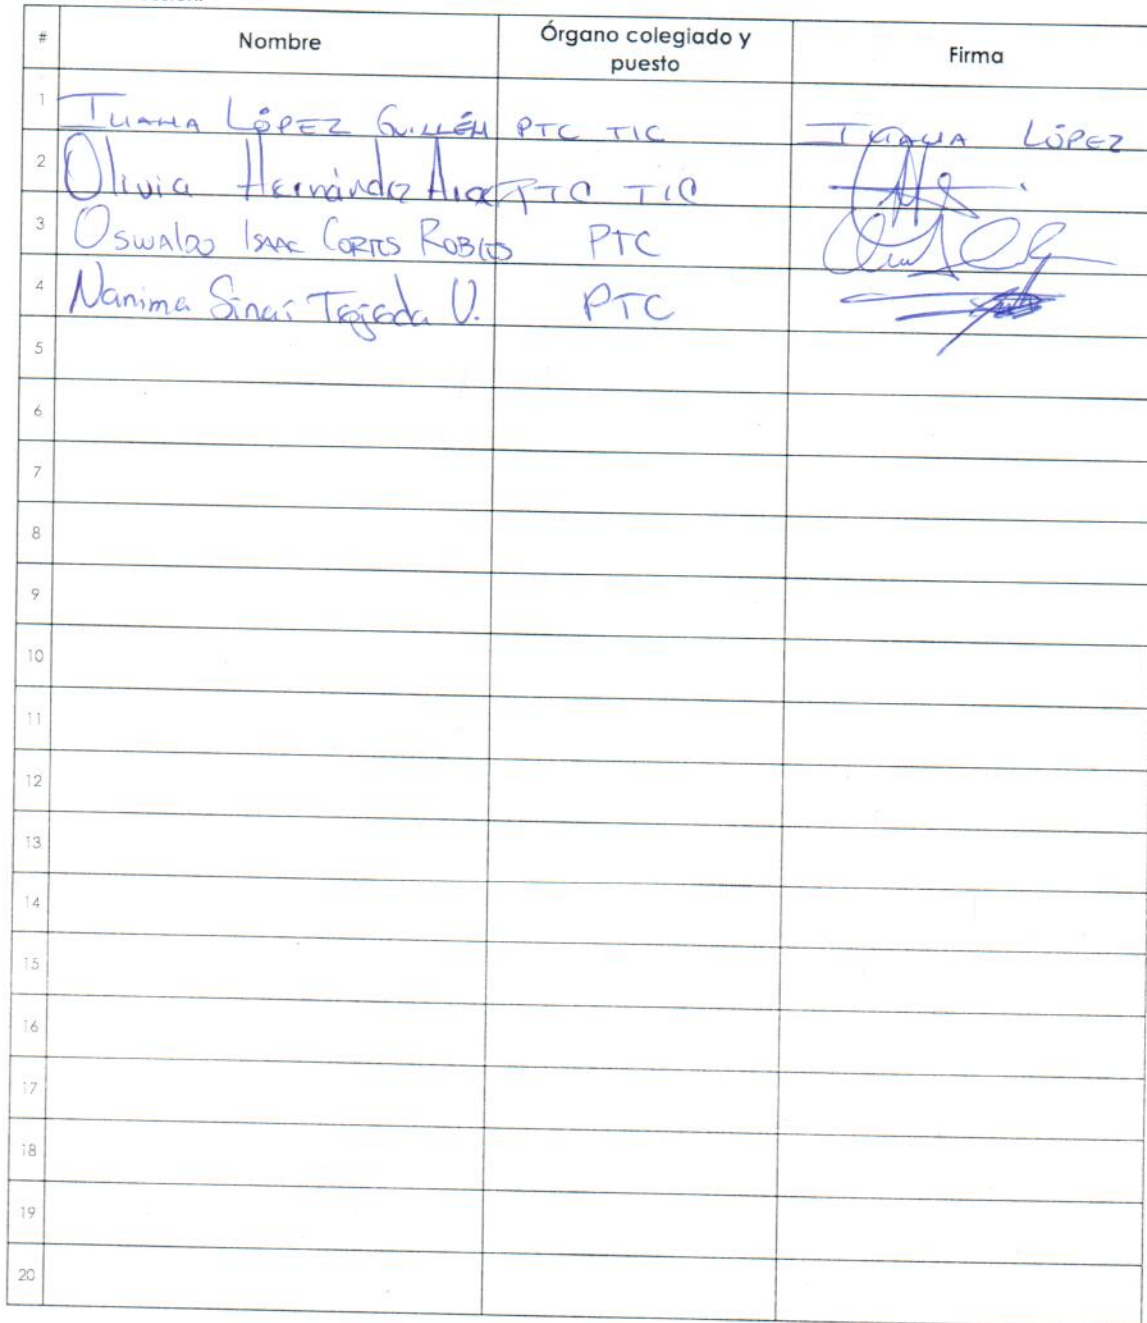 # Nombre Órgano colegiado y puesto Firma
1 LÓPEZ GUILLÉN PTC TIC LÓPEZ
2 Olivia Hernández PTC TIC
3 Oswaldo Isaac Cortes Robles PTC
4 Nanima Sinaí Tejeda V. PTC
5
6
7
8
9
10
11
12
13
14
15
16
17
18
19
20